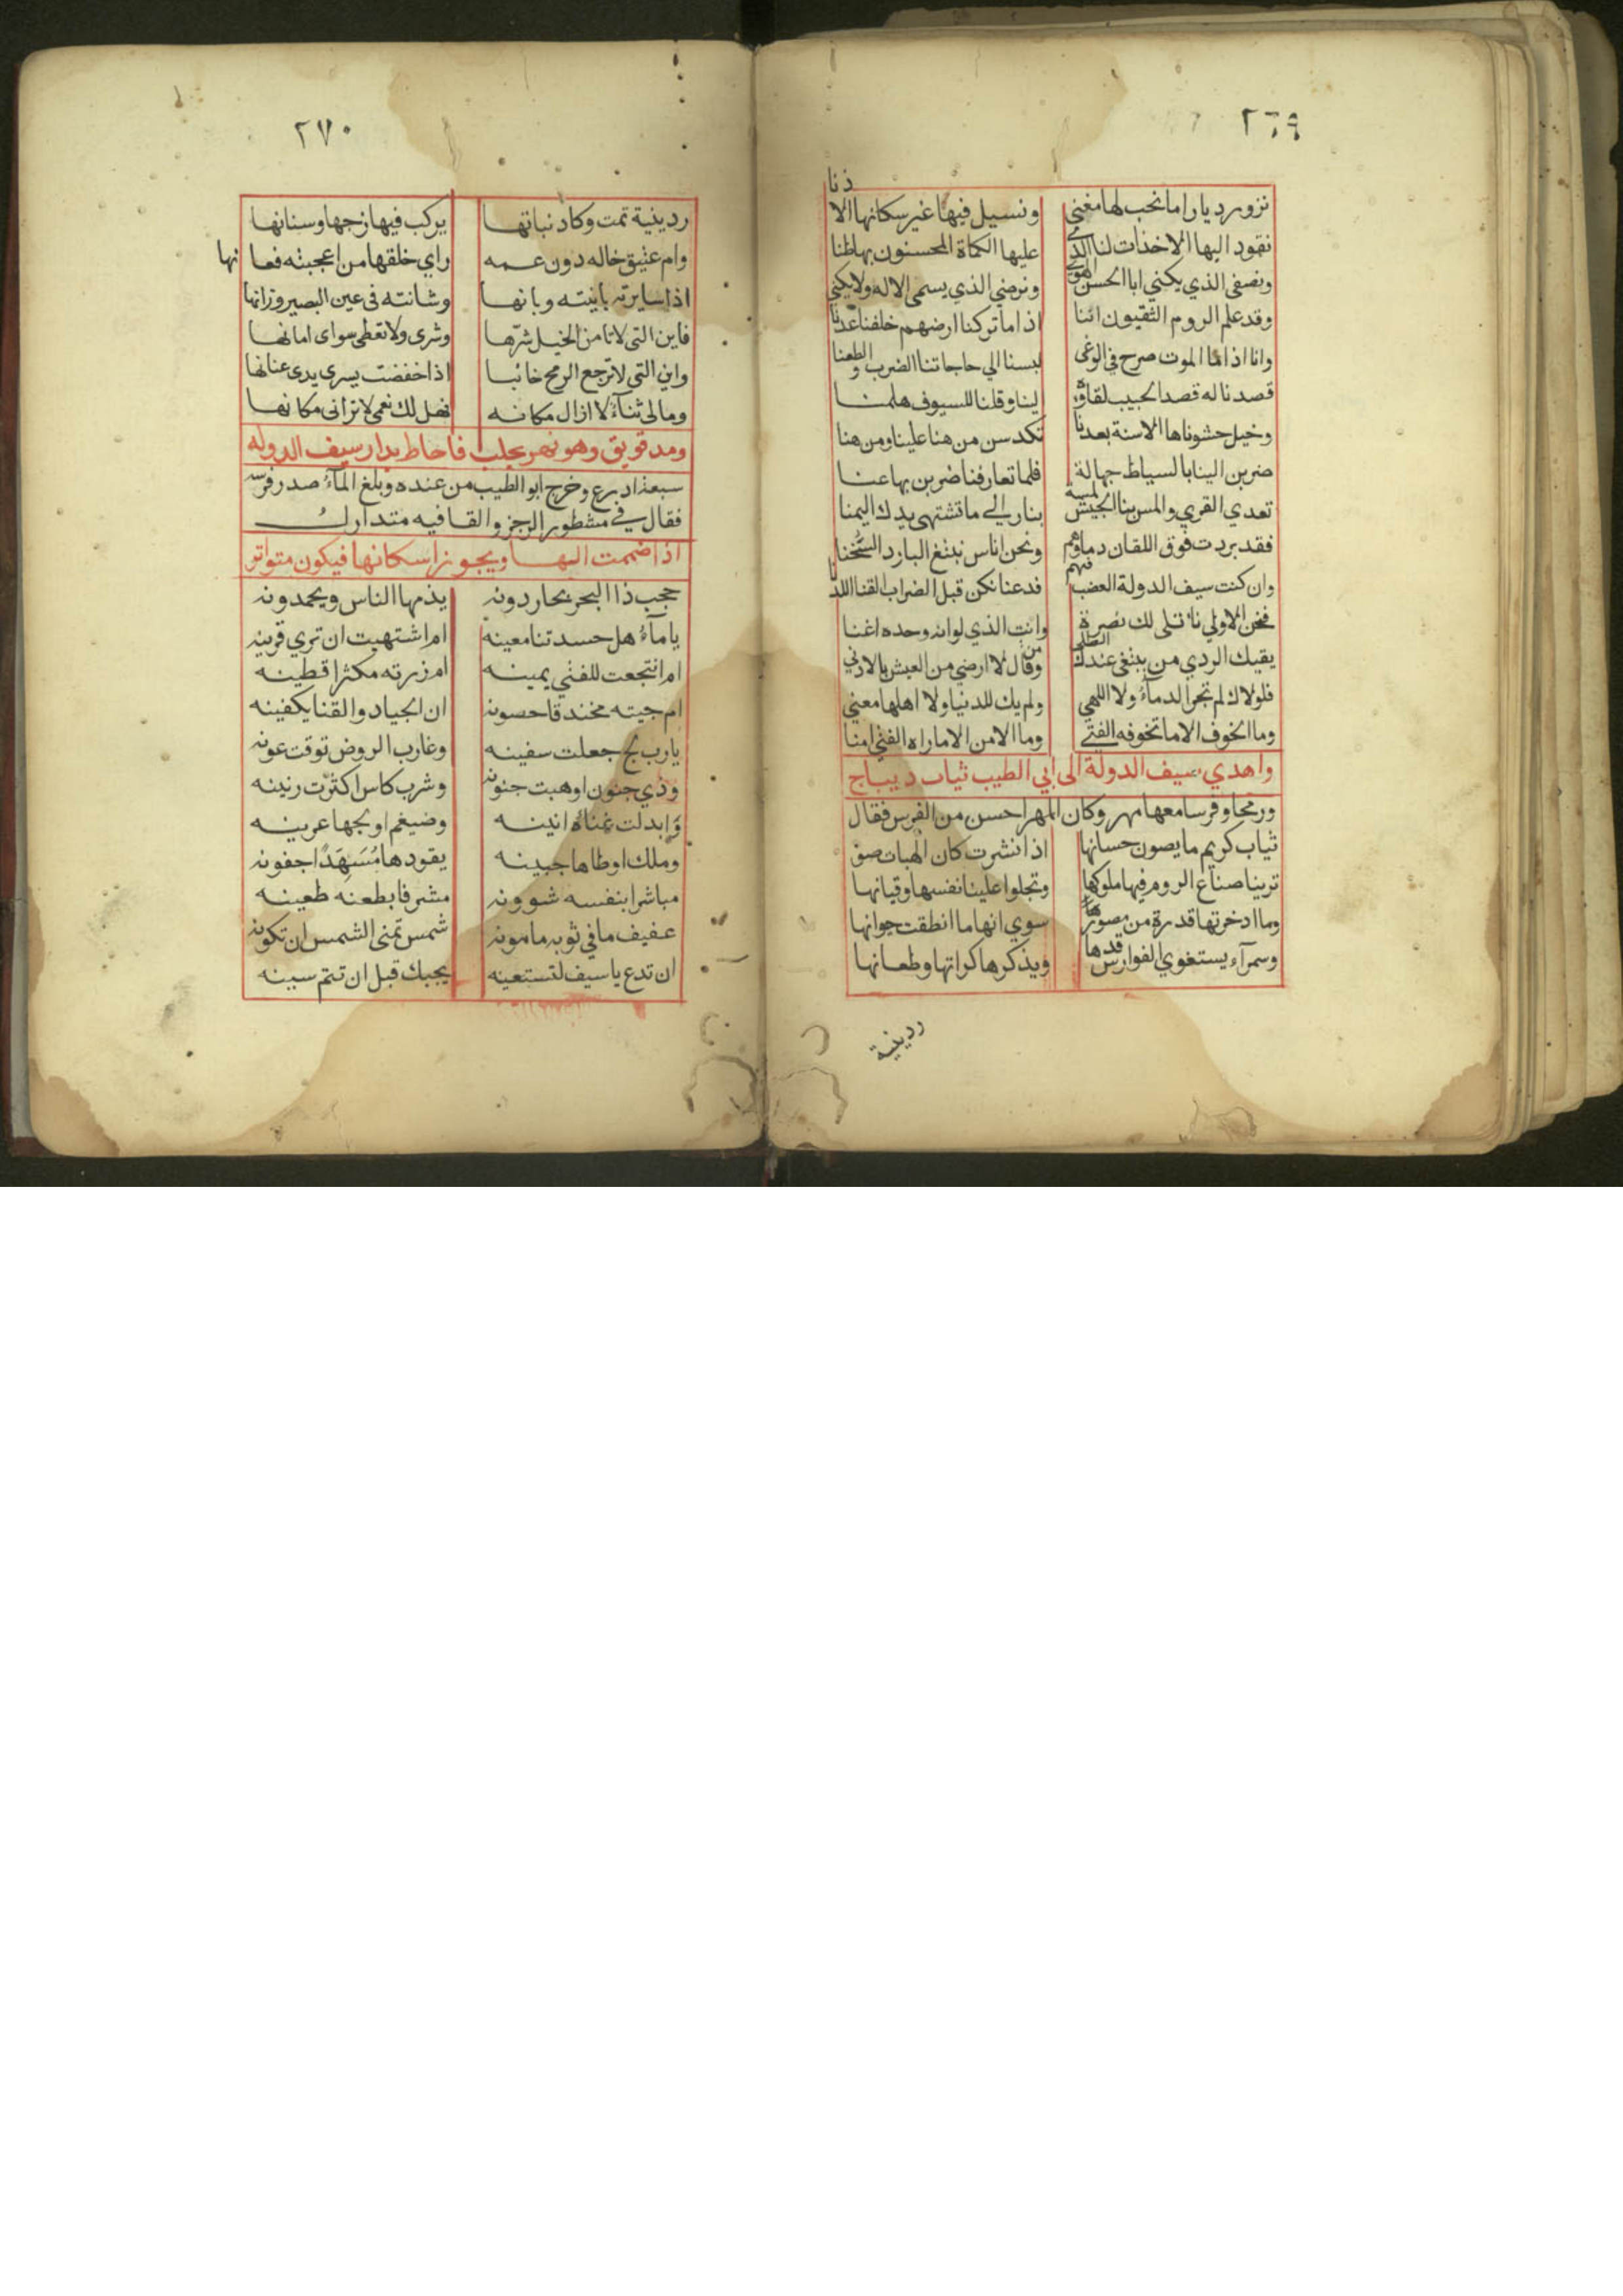 ٢٦٩
نزور ديارا ما نحب لها مغني ونسيل فيها غير سكانها الاذنا
نقود اليها الاخذات لنا المدي عليها الكماة المحسنون بها ظنا
ونصفي الذي يكني ابا الحسن الهوي ونرضي الذي يسمي الاله ولا يكني
وقد علم الروم الشقيون اننا اذا ما تركنا ارضهم خلفنا عدنا
وانا اذا ما الموت صرح في الوغي لبسنا الي حاجاتنا الضرب والطعنا
قصدنا له قصد الحبيب لقاؤه الينا وقلنا للسيوف هلمنا
وخيل حشوناها الاسنة بعدما تكدسن من هنا علينا ومن هنا
ضربن الينا بالسياط جهالة فلما تعارفنا ضربن بها عنا
تعدي القري والمس بنا الجيش لمسة بنار الي ما تشتهي يدك اليمنا
فقد بردت فوق اللقان دماوهم ونحن اناس نبتغ البارد السخنا
وان كنت سيف الدولة العضب فيهم فدعنا نكن قبل الضراب القنا اللدنا
فنحن الاولي نا تلي لك نصرة وانت الذي لو انه وحده اغنا
يقيك الردي من يبتغي عندك العلي ومن قال لا ارضي من العيش بالادني
فلولاك لم تجر الدماء ولا اللهي ولم يك للدنيا ولا اهلها معني
وما الخوف الا ما تخوفه الفتي وما الامن الا ما راه الفتي امنا
واهدي سيف الدولة الي ابي الطيب ثياب ديباج
ورمحا وفرسا معها مهر وكان المهر احسن من الفرس فقال
ثياب كريم ما يصون حسانها اذا نشرت كان الهبات صون
ترينا صناع الروم فيها ملوكها وتجلوا علينا نفسها وقيانها
وما ادخرتها قدرة من مصور سوي انها ما انطقت حيوانها
وسمرآء يستغوي الفوارس قدها ويذكرها كراتها وطعانها
ردينية
٢٧٠
ردينية تمت وكاد نباتها يركب فيها زجها وسنانها
وام عتيق خاله دون عمه راي خلقها من اعجبته فعانها
اذا سايرته باينته وبانها وشانته في عين البصير وزانها
فاين التي لا تامن الخيل شرها وشري ولا تعطي سواي امانها
واين التي لا ترجع الرمح خائبا اذا خفضت يسري يدي عنانها
ومالي ثناء لا ازال مكانه فهل لك نعمي لا تراني مكانها
ومد قويق وهو نهر بحلب فاحاط بدار سيف الدوله
سبعة اذرع وخرج ابو الطيب من عنده وبلغ المآء صدر فرسه
فقال في مشطور الرجز والقافيه متدارك
اذا ضممت الهـا ويجوز اسكانها فيكون متواتر
حجب ذا البحر بحار دونه يذمها الناس ويحمدونه
يا مآء هل حسدتنا معينه ام اشتهيت ان تري قرينه
ام انتجعت للغني يمينه ام زرته مكثرا قطينه
ام جيته مخندقا حصونه ان الجياد والقنا يكفينه
يا رب لج جعلت سفينه وعازب الروض توفت عونه
وذي جنون اوهبت جنونه وشرب كاس اكثرت رنينه
وابدلت غناه انينه وضيغم اولجها عرينه
وملك اوطاها جبينه يقودها مُسَهِّدًا جفونه
مباشرا بنفسه شوونه مشرفا بطعنه طعينه
عفيف ما في ثوبه مامونه شمس تمني الشمس ان تكونه
ان تدع يا سيف لتستعينه يجبك قبل ان تتم سينه